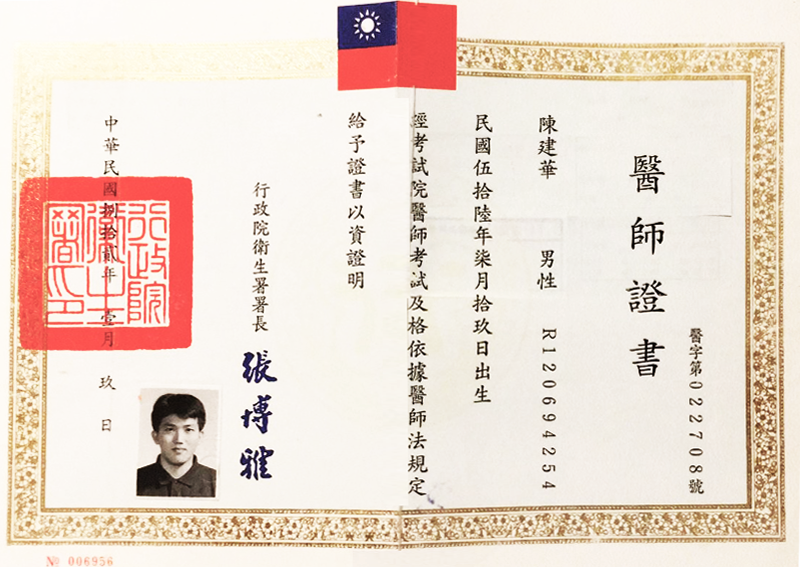 醫字第022708號
醫師證書
陳建華 男性 R120694254
民國伍拾陸年柒月拾玖日出生
經考試院醫師考試及格依據醫師法規定
給予證書以資證明
行政院衛生署署長 張博雅
中華民國捌拾貳年壹月玖日
行政院衛生署印
№ 006956